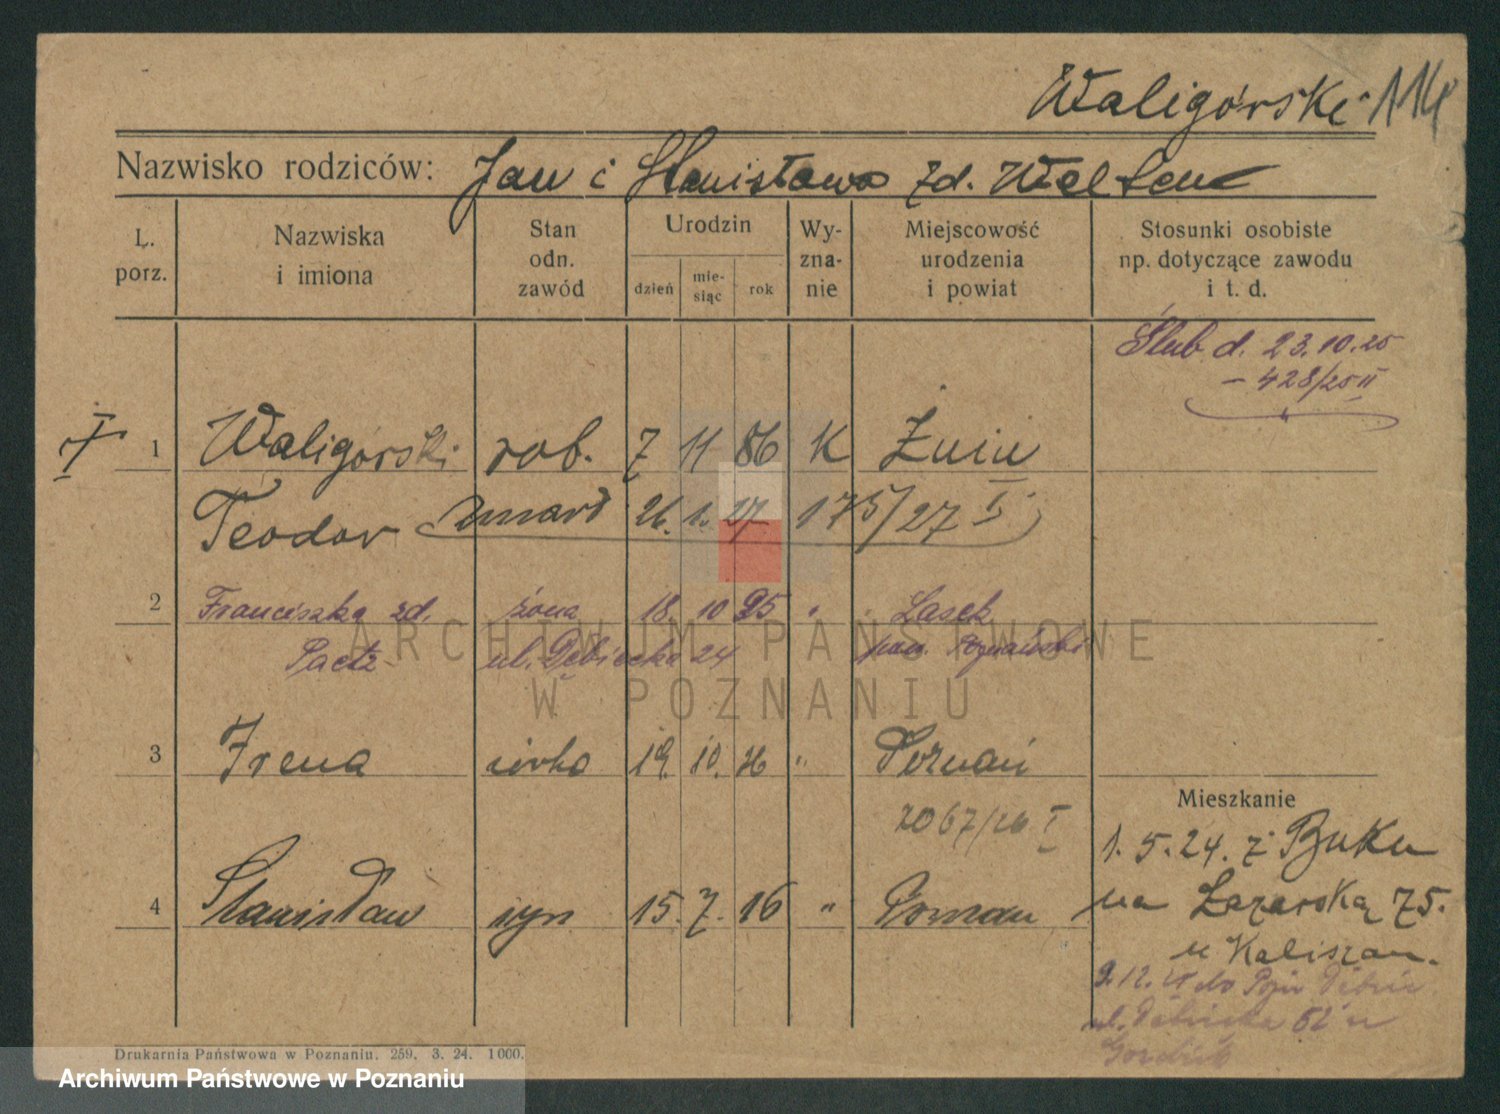 Waligórski 114
Nazwisko rodziców: Jan i Stanisława zd. Welten
L. porz.
Nazwiska i imiona
Stan odn. zawód
Urodzin
dzień
mie-siąc
rok
Wy-zna-nie
Miejscowość urodzenia i powiat
Stosunki osobiste np. dotyczące zawodu i t. d.
Ślub d. 23.10.25
– 428/25 II
1 Waligórski rob. 7 11 86 K Żnin
Teodor zmarł 26. 1. 27. 175/27 I
2 Franciszka zd. żona 18. 10 95 " Lasek
Paetz ul. Dębiecka 24 pow. Poznański
3 Irena córka 19. 10. 26 " Poznań
2067/26 I
4 Stanisław syn 15. 7. 16 " Poznań
Mieszkanie
1. 5. 24. z Buku
na Łazarską 75.
u Kaliszan.
9.12.
ul. Dębiecka
Drukarnia Państwowa w Poznaniu. 259. 3. 24. 1000.
ARCHIWUM PAŃSTWOWE
W POZNANIU
Archiwum Państwowe w Poznaniu